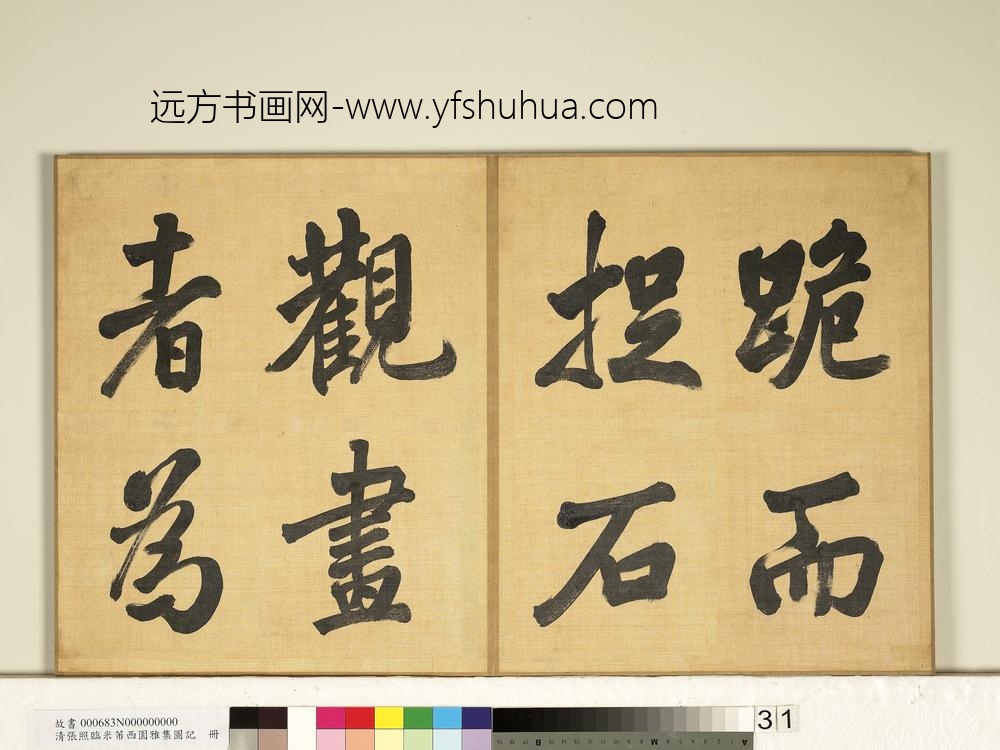 远方书画网-www.yfshuhua.com
跪而
捉石
觀畫
者為
故書 000683N000000000
清張照臨米芾西園雅集圖記 冊
31